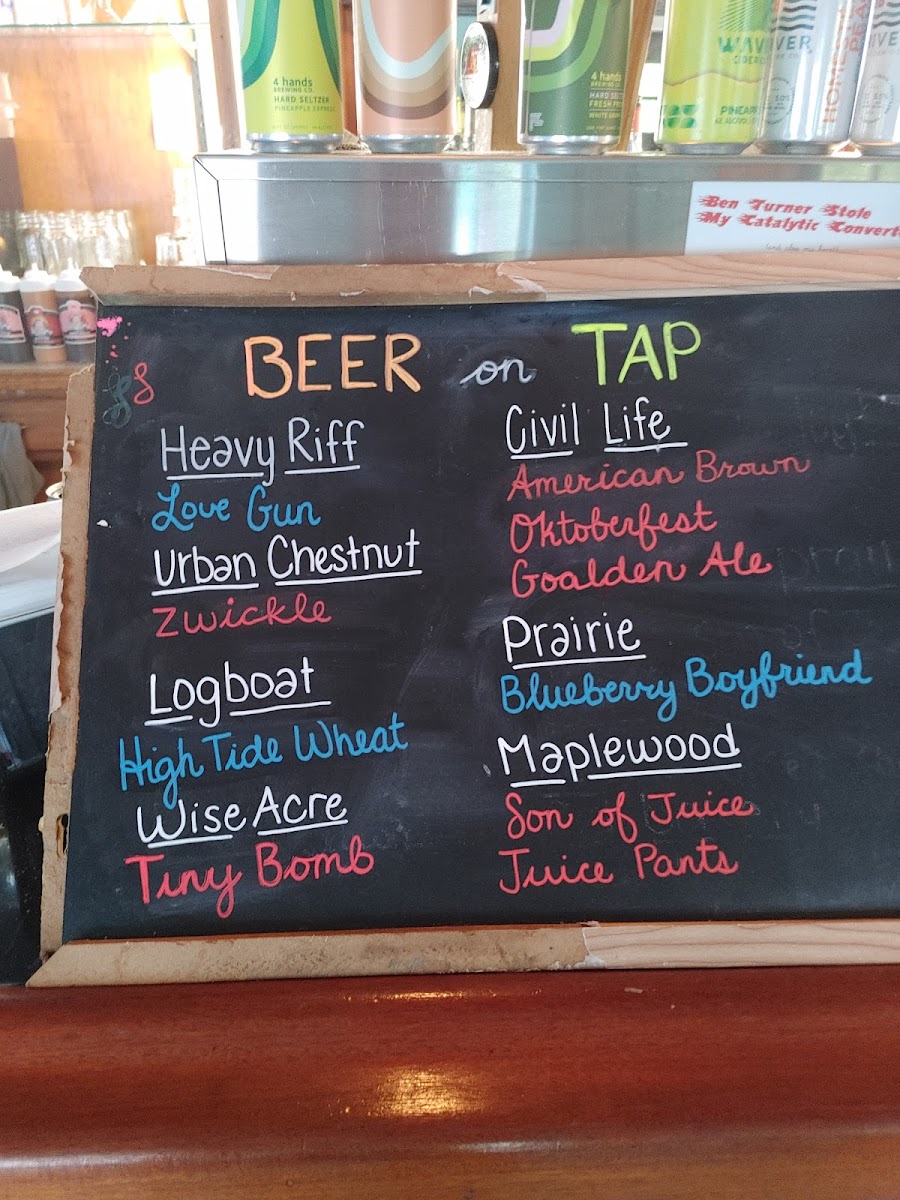 4 hands
BREWING CO.
HARD SELTZER
PINEAPPLE EXPRESS
4 hands
BREWING CO.
HARD SELTZER
WHITE
CIDER
PINEAPPLE
Ben Turner Stole
My Catalytic
BEER on TAP
Heavy Riff
Love Gun
Urban Chestnut
Zwickle
Logboat
High Tide Wheat
Wise Acre
Tiny Bomb
Civil Life
American Brown
Oktoberfest
Goalden Ale
Prairie
Blueberry Boyfriend
Maplewood
Son of Juice
Juice Pants